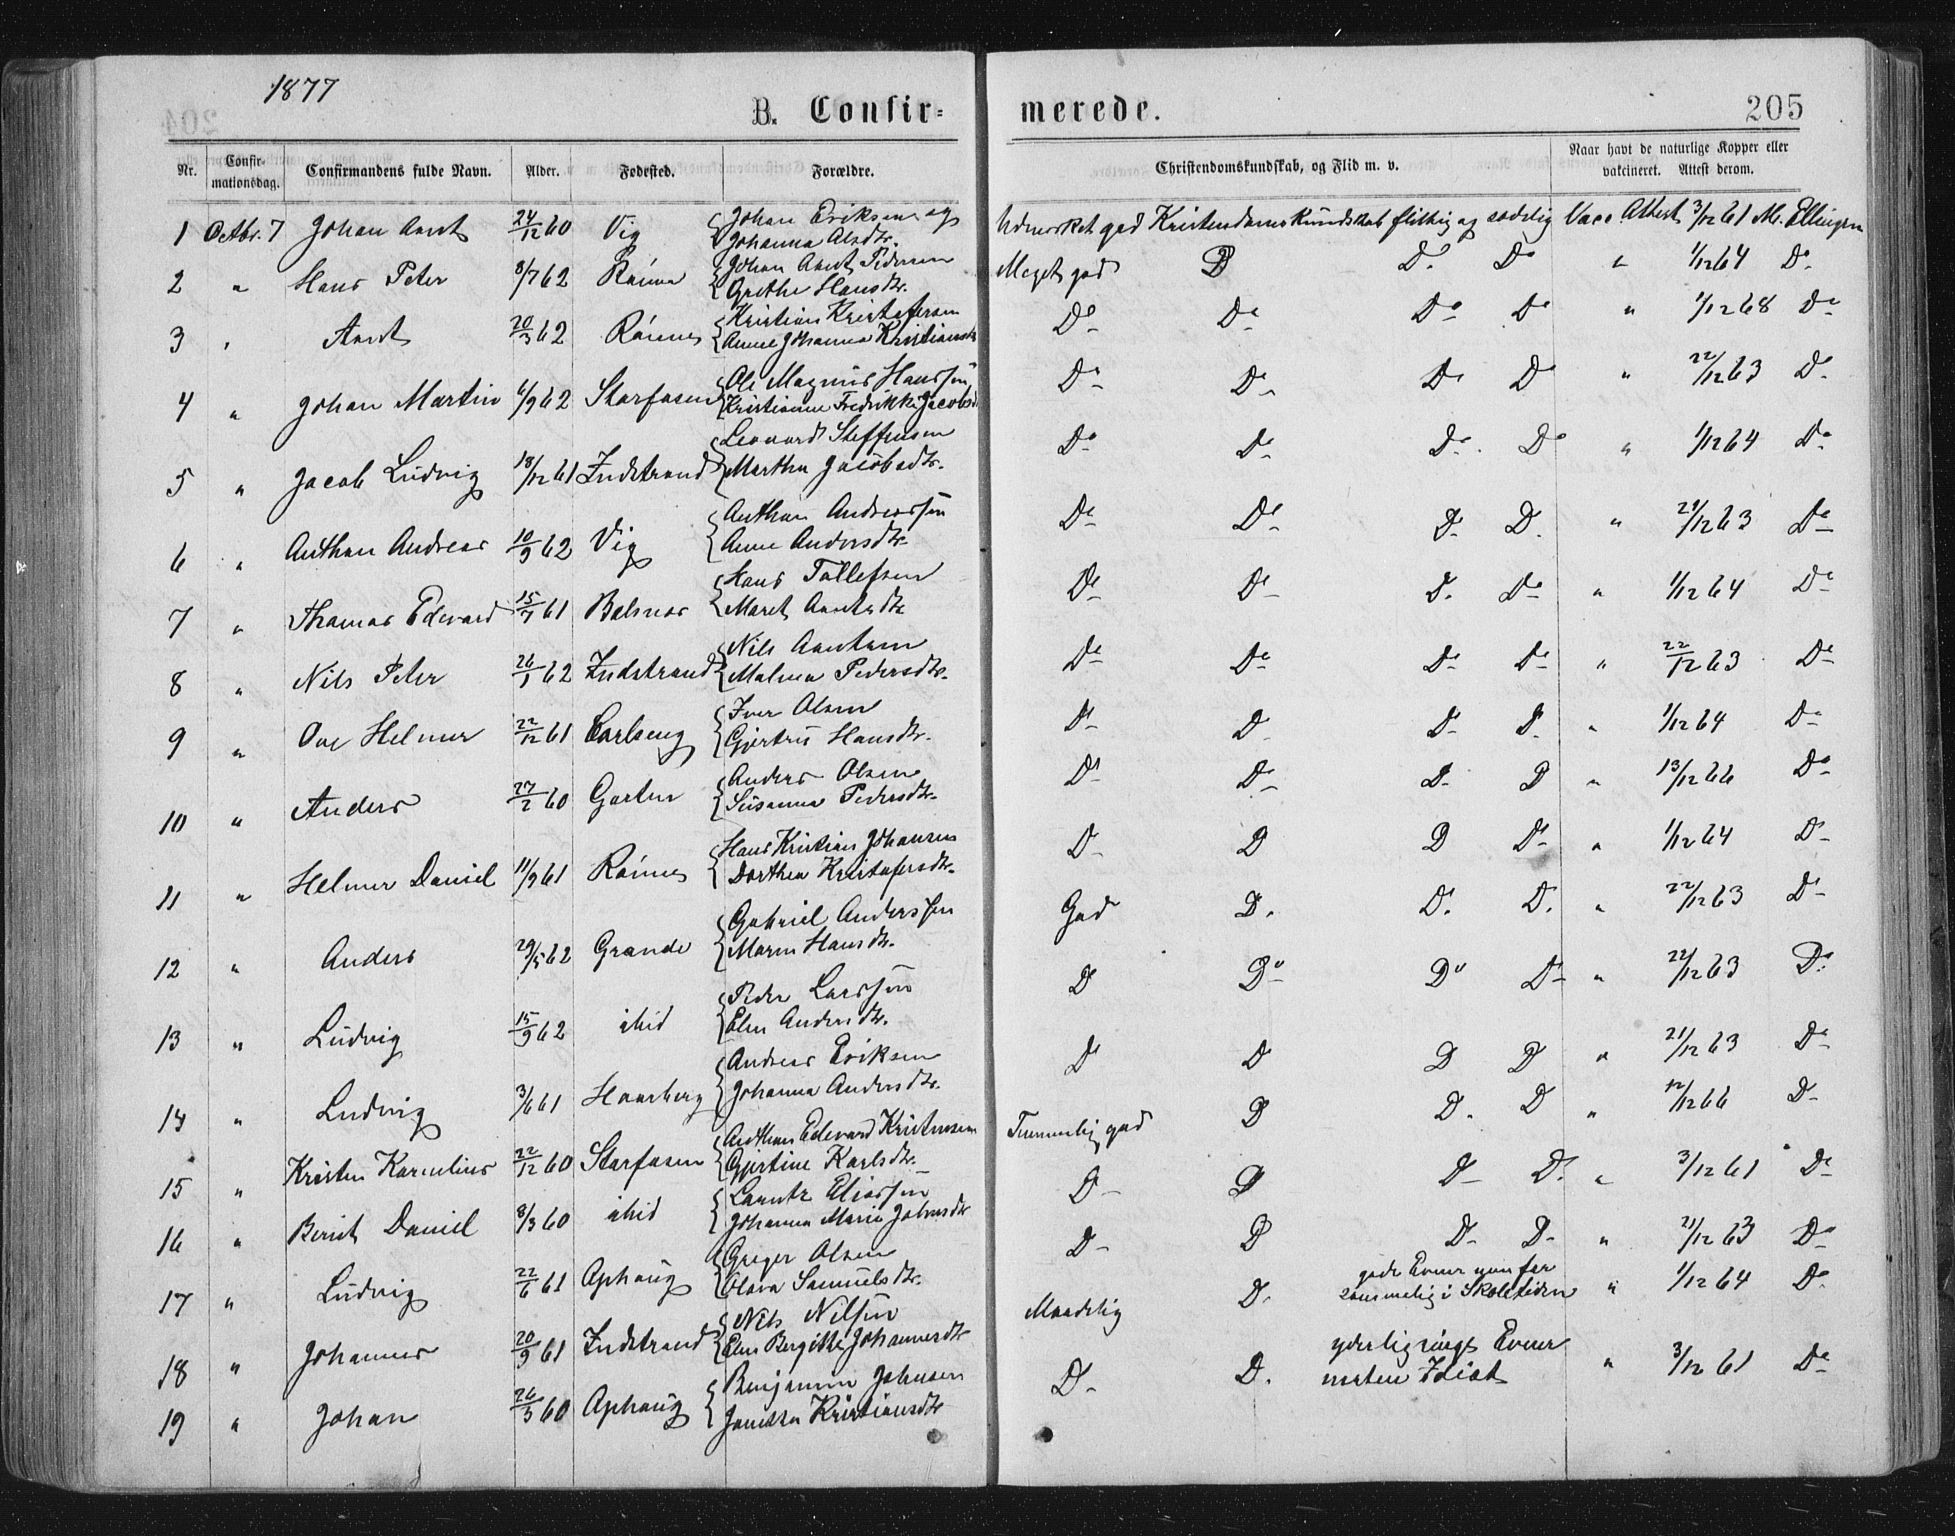 1877
B. Confir=
merede.
205
Nr.
Confir-
mationsdag.
Confirmandens fulde Navn.
Alder.
Fødested.
Forældre.
Christendomskundskab, og Flid m. v.
Naar havt de naturlige Kopper eller
vakcineret. Attest derom.
1 Octbr. 7 Johan Arnt 24/12 60 Vig {Johan Eriksen og
Johanna Olsdtr. Udmærket god Kristendomskundskab flittig og sædelig Vacc Attest 3/12 61 M. Ellingsen
2 " Hans Peter 8/7 62 {Johan Arnt Pedersen
Grethe Hansdtr. Meget god D D. Do " 1/12 64 Do
3 " Arnt 20/3 62 Rønnes {Kristian Kristofersen
Anne Johanna Kristiansdtr Do Do Do Do " 1/12 68 Do
4 " Johan Martin 6/9 62 Storfosen {Ole Magnus Hanssøn
Kristianne Fredrikke Jacobsd Do Do Do D " 22/12 63 Do
5 " Jacob Ludvig 18/12 61 Indstrand {Leonard Steffensen
Martha Jacobsdtr. Do Do Do Do " 1/12 64 Do
6 " Anthon Andreas 10/9 62 Vig {Anthon Andreassøn
Anne Andersdtr. Do Do D. D. " 21/12 63 Do
7 " Thomas Edvard 15/7 61 {Hans Tollefsen
Maret Arntsdtr Do Do D. Do " 1/12 64 Do
8 " Nils Peter 26/1 62 Indstrand {Nils Arntsen
Malena Pedersdtr. Do Do Do Do " 22/12 63 Do
9 " Ove Helmer 22/12 61 Carlseng {Iver Olsen
Gjertru Hansdtr. Do D Do D. " 1/12 64 Do
10 " Anders 27/2 60 Garten {Anders Olsen
Susanna Pedersdtr. Do Do D. D " 13/12 66 Do
11 " Helmer Daniel 11/9 61 Rønnes {Hans Kristian Johansen
Dorthea Kristofersdtr. D D D Do " 1/12 64 Do
12 " Anders 29/5 62 Grande {Gabriel Anderssen
Maren Hansdtr. God D. D. D. " 22/12 63 Do
13 " Ludvig 15/9 62 ibid {Peder Larssøn
Elen Andersdtr. D Do Do Do " 22/12 63 Do
14 " Ludvig 3/6 61 Haarberg {Andreas Eriksen
Johanna Andersdtr. D D D D " 21/12 63 Do
15 " Kristen Kornelius 22/12 60 Storfosen {Anthon Edevard Kristensen
Gjertine Karlsdtr. Temmelig god D D. D " 12/12 66 Do
16 " Berint Daniel 8/3 60 ibid {Lorntz Eliassøn
Johanna Maria D D D D. " 3/12 61 Do
17 " Ludvig 22/6 61 Ophaug {Greger Olsen
Olava Samuelsdtr. D D D D. " 21/12 63 Do
18 " Johannes 20/9 61 Indstrand {Nils Nilsen
Elen Bergitte Johannesdtr Maadelig D. gode Evner men for
i Skoletiden " 1/12 64 Do
19 " Johan 26/3 60 Ophaug {Benjamin Johnsen
Kristiansdtr D D. yderlig ringe Evner
næsten Idiot " 3/12 61 Do